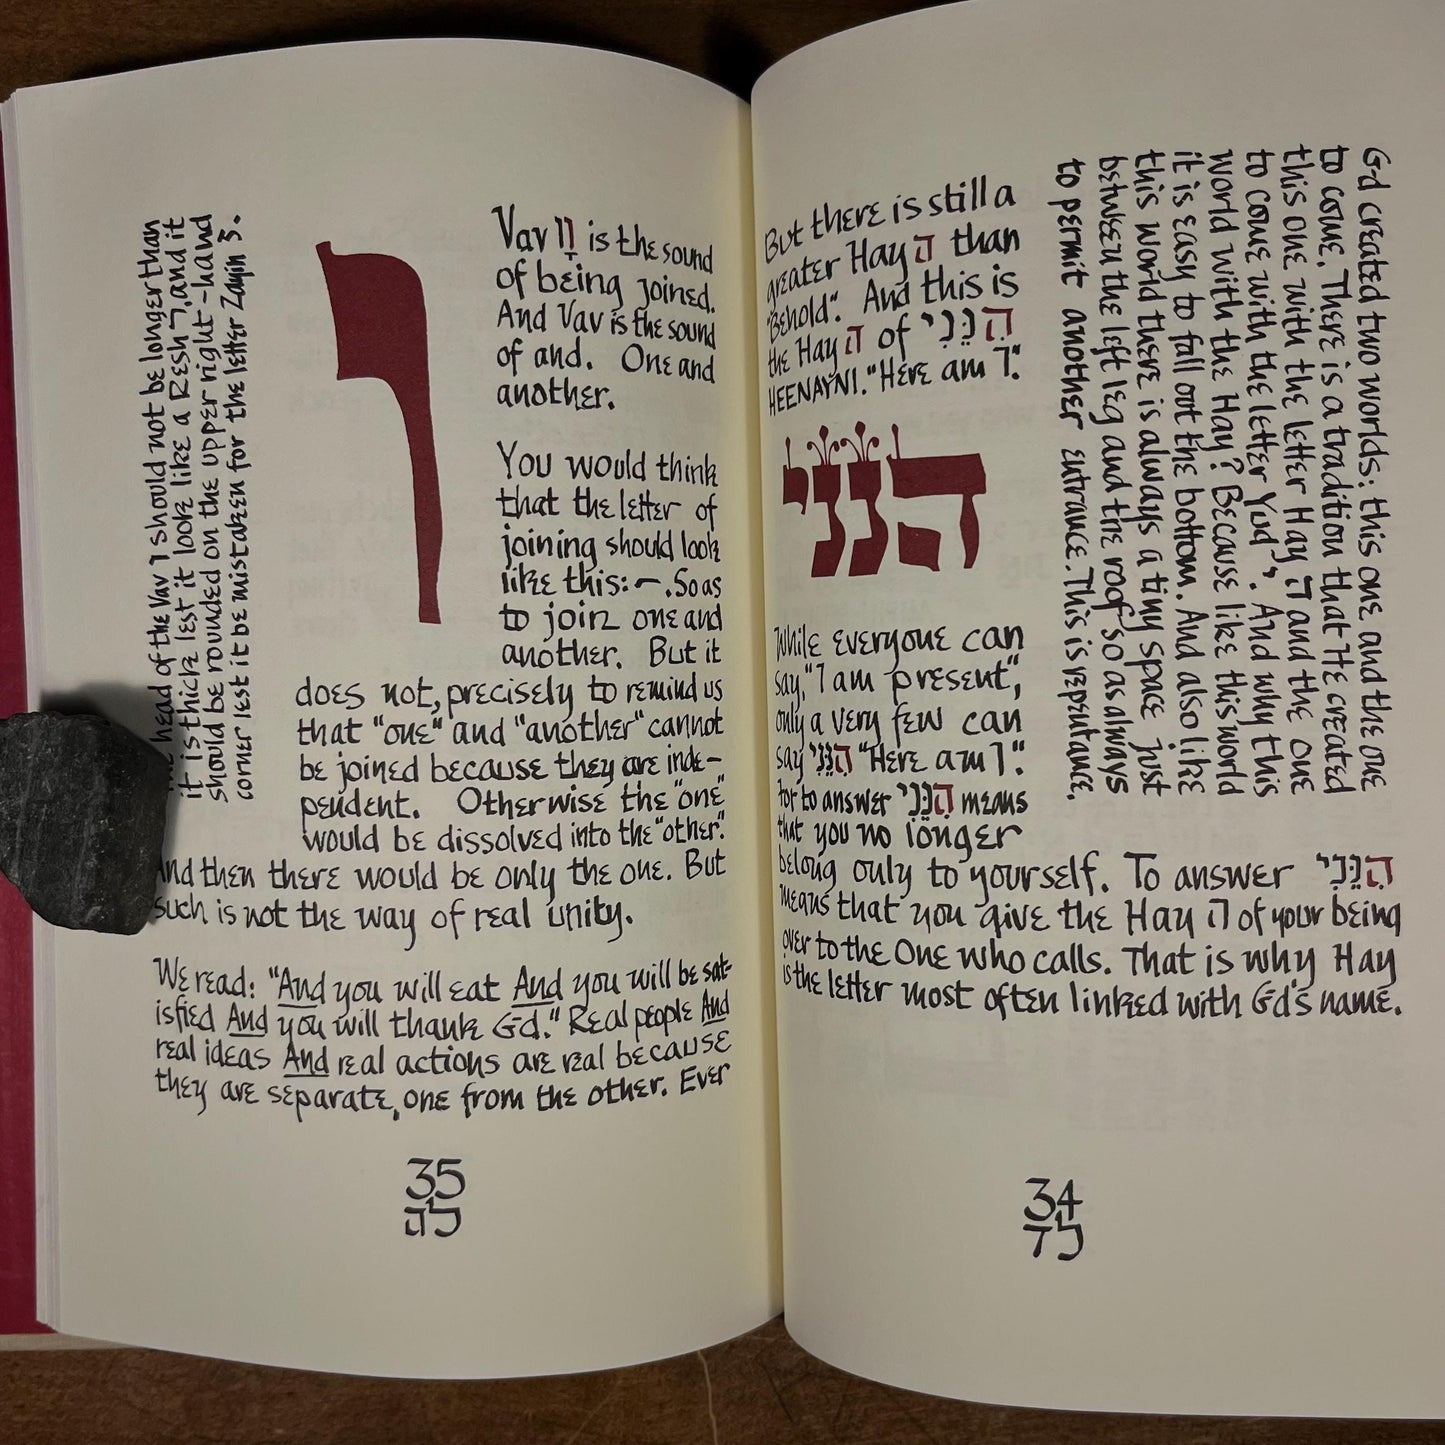 But there is still a
greater Hay ה than
"Behold". And this is
the Hay ה of הִנֵּנִי
HEENAYNI. "Here am I".
הנני
While everyone can
say, "I am present",
only a very few can
say הִנֵּנִי "Here am I".
for to answer הִנֵּנִי means
that you no longer
belong only to yourself. To answer הִנֵּנִי
means that you give the Hay ה of your being
over to the One who calls. That is why Hay
is the letter most often linked with Gd's name.
Gd created two worlds: this one and the one
to come. There is a tradition that He created
this one with the letter Hay ה and the one
to come with the letter Yod י. And why this
world with the Hay? Because like this world
it is easy to fall out the bottom. And also like
this world there is always a tiny space just
between the left leg and the roof so as always
to permit another entrance. This is repentance.
34
לד
ו
Vav וָו is the sound
of being joined.
And Vav is the sound
of and. One and
another.
You would think
that the letter of
joining should look
like this: ~. So as
to join one and
another. But it
does not, precisely to remind us
that "one" and "another" cannot
be joined because they are inde-
pendent. Otherwise the "one"
would be dissolved into the "other".
And then there would be only the one. But
such is not the way of real unity.
We read: "And you will eat And you will be sat-
isfied And you will thank Gd." Real people And
real ideas And real actions are real because
they are separate, one from the other. Ever
head of the Vav ו should not be longer than
it is thick lest it look like a Resh ר, and it
should be rounded on the upper right-hand
corner lest it be mistaken for the letter Zayin ז.
35
לה